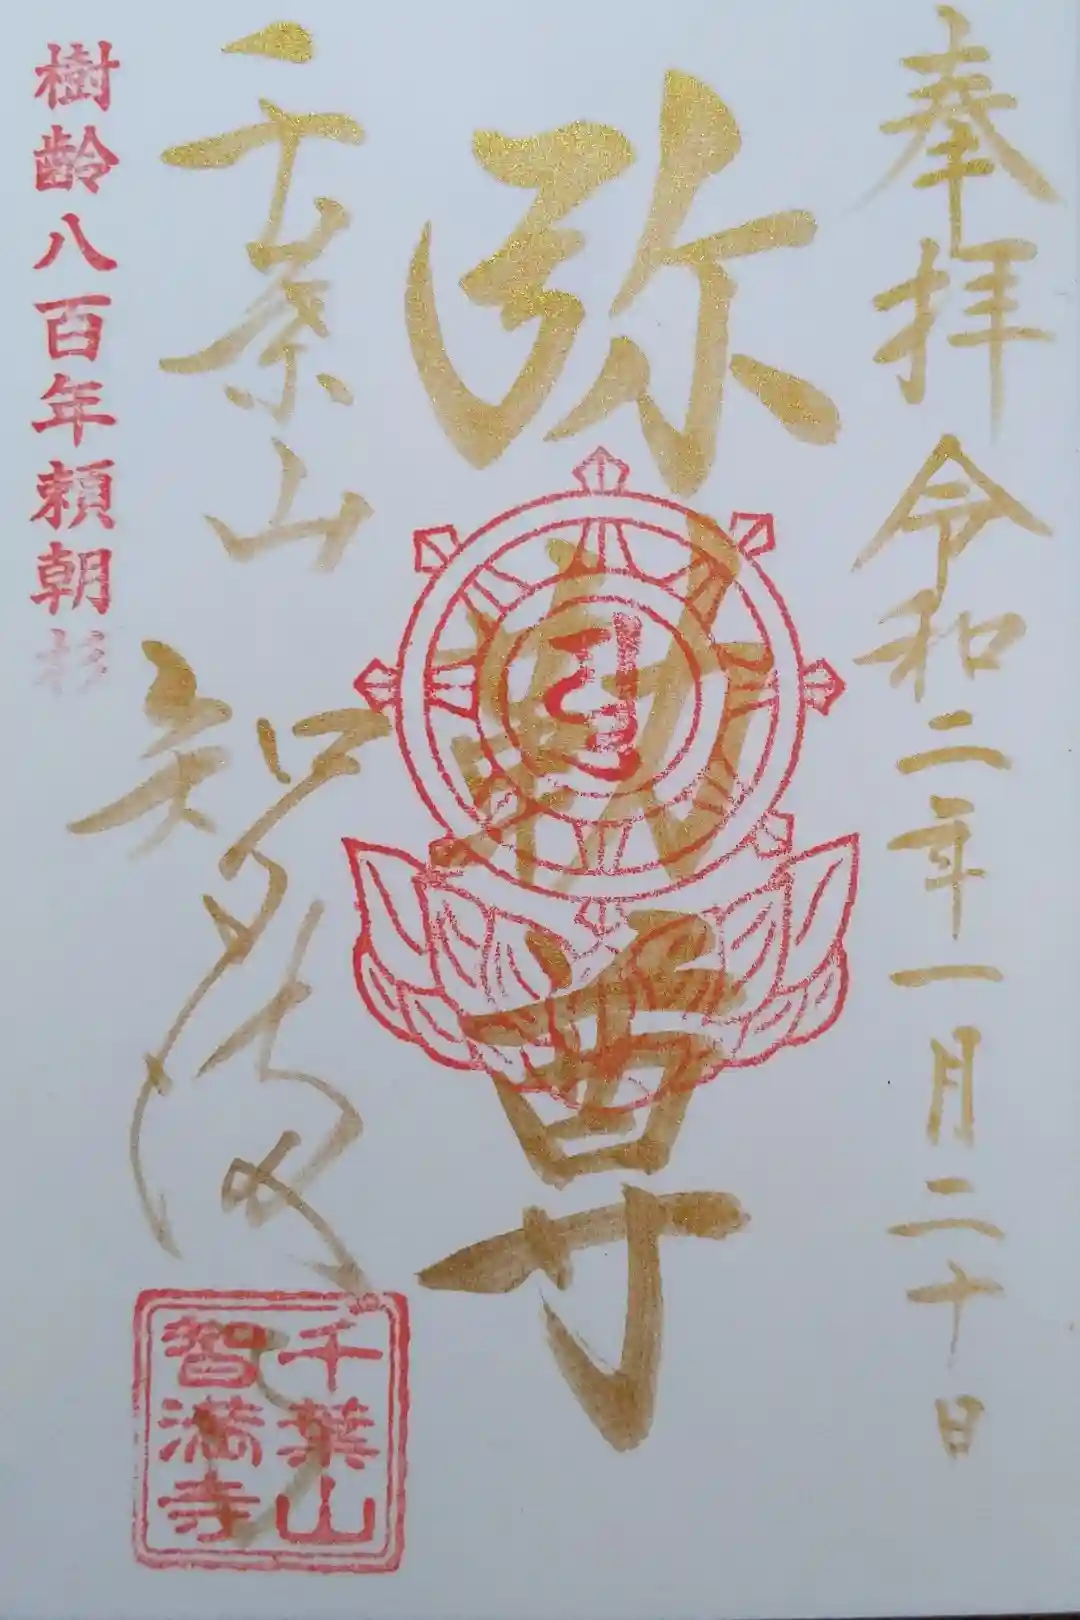 奉拝 令和二年一月二十日
弥勒尊
千葉山 智満寺
千葉山
智満寺
樹齢八百年頼朝杉